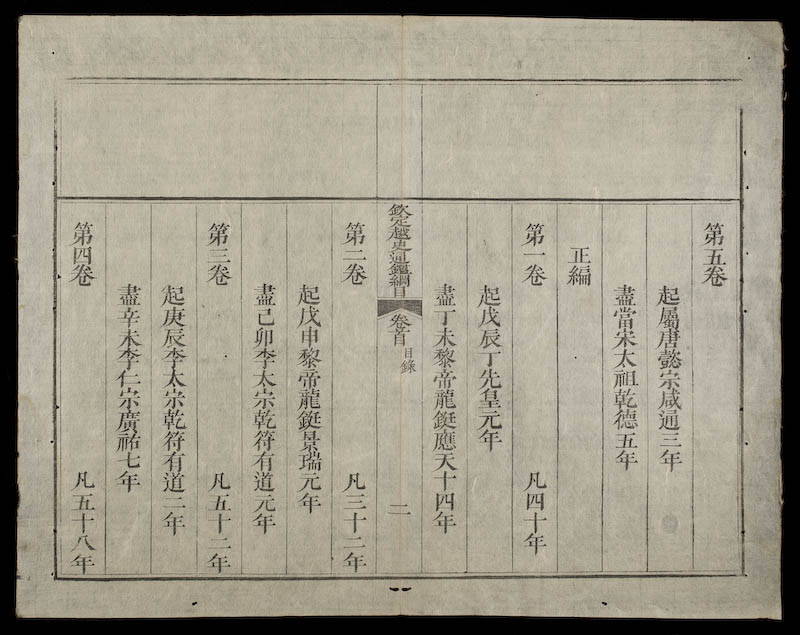 第五卷
起屬唐懿宗咸通三年
盡當宋太祖乾德五年
正編
第一卷 凡四十年
起戊辰丁先皇元年
盡丁未黎帝龍鋌應天十四年
欽定越史通鑑綱目 卷首 目錄 二
第二卷 凡三十二年
起戊申黎帝龍鋌景瑞元年
盡己卯李太宗乾符有道元年
第三卷 凡五十二年
起庚辰李太宗乾符有道二年
盡辛未李仁宗廣祐七年
第四卷 凡五十八年